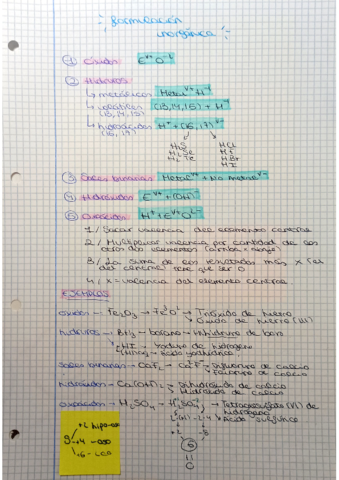 formulación
inorgánica
① Óxidos E^v+ O^-2
② Hidruros
↳ metálicos Metal^v+ H^-1
↳ volátiles (13,14,15) + H^-1
(13,14,15)
↳ hidrácidos H^+ + (16,17)^v-
(16,17)
H₂S HCl
H₂Se HF
H₂Te HBr
HI
③ Sales binarias Metal^v+ + No metal^v-
④ Hidróxidos E^v+ + (OH)^-
⑤ Oxoácidos H^+ + E^v+ O^2-
1/ Sacar valencia del elemento central
2/ Multiplicar valencia por cantidad de
3/ La suma de los resultados más x
del central tiene que ser 0
4/ x = valencia del elemento central
EJEMPLOS
óxidos → Fe₂O₃ → → Trióxido de hierro
Óxido de hierro (III)
hidruros → BH₃ → borano → trihidruro de boro
HI → yoduro de hidrógeno
ácido yodhídrico
sales binarias → CaF₂ → → Difluoruro de calcio
Fluoruro de calcio
hidróxidos → Ca(OH)₂ → Dihidróxido de calcio
Hidróxido de calcio
oxoácidos → H₂SO₄ → → Tetraoxosulfato (VI) de
hidrógeno
Ácido sulfúrico
+2 hipo-oso
S → +4 -oso
+6 -ico
⑥
0